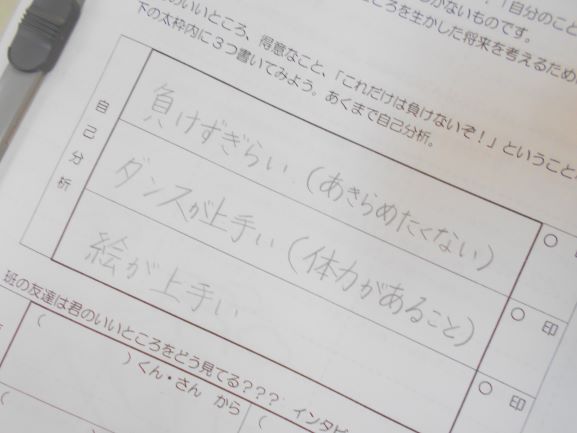 「自分のこと
のいいところ、得意なこと、「これだけは負けないぞ！」ということ
下の太枠内に３つ書いてみよう。あくまで自己分析。
自己分析
負けずぎらい（あきらめたくない）
○
ダンスが上手い（体力があること）
○ 印
絵が上手い
○ 印
班の友達は君のいいところをどう見てる？？？ インタビ
（
）くん・さん から
（
（